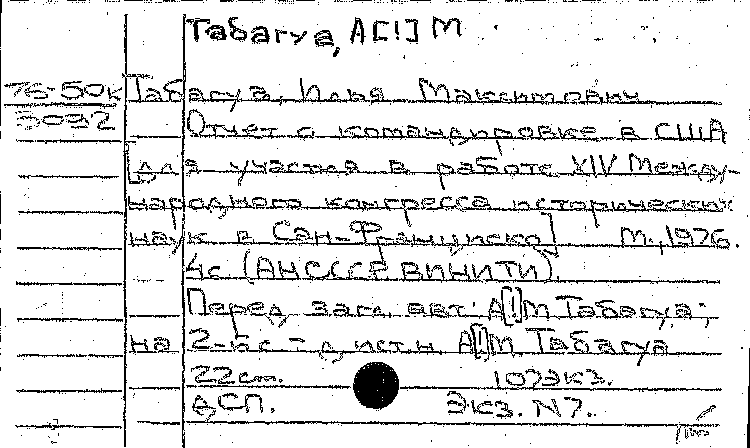 Табагуа, А[!] М
76-50к Табагуа, Илья Максимович
3092 Отчет о командировке в США
[для участия в работе XIV Между-
народного конгресса исторических
наук в Сан-Франциско] М., 1976.
4с (АН СССР ВИНИТИ).
Перед загл. авт: А[!]М Табагуа;
на 2-й с - д. ист. н. А[!]М. Табагуа
22см. 107экз.
ДСП. Экз. N7.